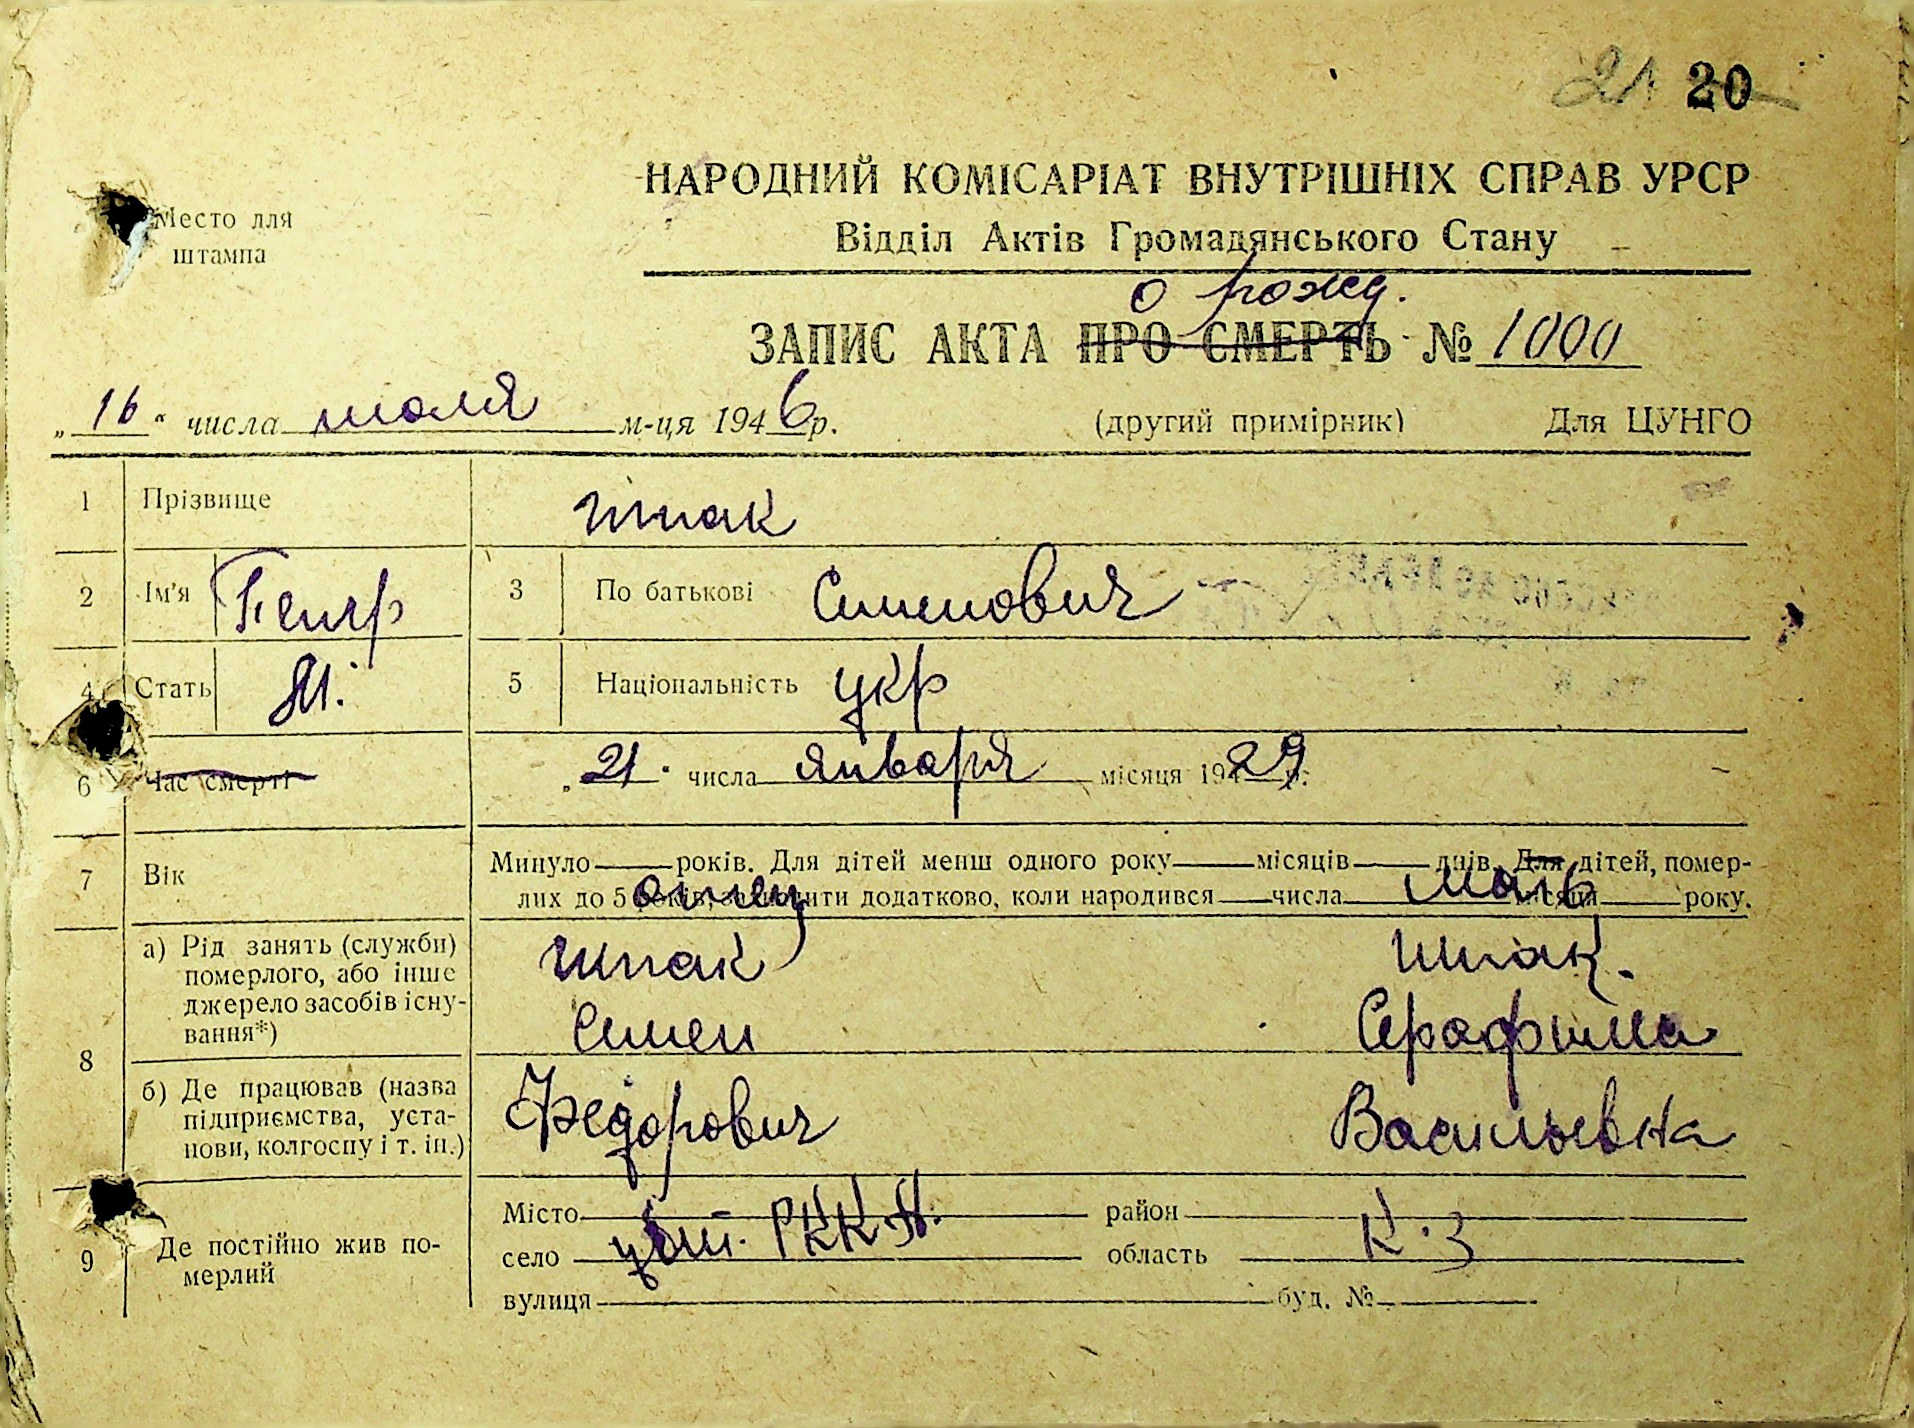 21 20
НАРОДНИЙ КОМІСАРІАТ ВНУТРІШНІХ СПРАВ УРСР
Место для
штампа
Відділ Актів Громадянського Стану
о рожд.
ЗАПИС АКТА ПРО СМЕРТЬ № 1000
„16“ числа июля м-ця 1946 р. (другий примірник) Для ЦУНГО
1 Прізвище Шпак
2 Ім'я Петр 3 По батькові Семенович
4 Стать М. 5 Національність укр
6 Час смерті „21“ числа января місяця 1929 р.
7 Вік Минуло років. Для дітей менш одного року місяців днів. Для дітей, помер-
лих до 5 років, зазначити додатково, коли народився числа місяця року.
отец мать
8 а) Рід занять (служби)
померлого, або інше
джерело засобів існу-
вання*)
Шпак Шпак.
Семен Серафима
б) Де працював (назва
підприємства, уста-
нови, колгоспу і т. ін.)
Федорович Васильевна
9 Де постійно жив по-
мерлий
Місто район
село РККА. область К.З
вулиця буд. №